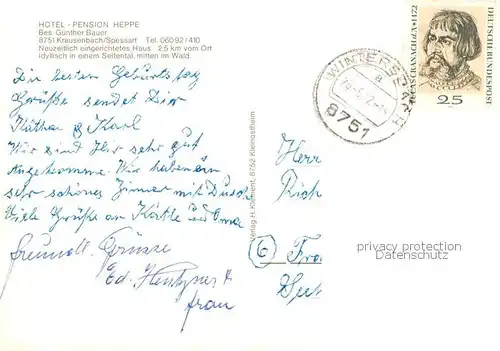 HOTEL - PENSION HEPPE
Bes. Günther Bauer
8751 Krausenbach/Spessart Tel. 06092/410
Neuzeitlich eingerichtetes Haus. 2,5 km vom Ort
idyllisch in einem Seitental, mitten im Wald.
Die besten Geburtstag
Grüße sendet Dir
Käthe & Karl
Wir sind hier sehr gut
angekommen. Wir haben ein
sehr schönes Zimmer mit Dusche
Viele Grüße an Käthe und
freundl. Grüsse
Ed.
Frau
Verlag H. Klement, 8752 Kleinostheim
WINTERSBACH
a
8751
LUCAS CRANACH D.Ä. † 1472
DEUTSCHE BUNDESPOST
25
Herr
Rich
6
Fra
privacy protection
Datenschutz